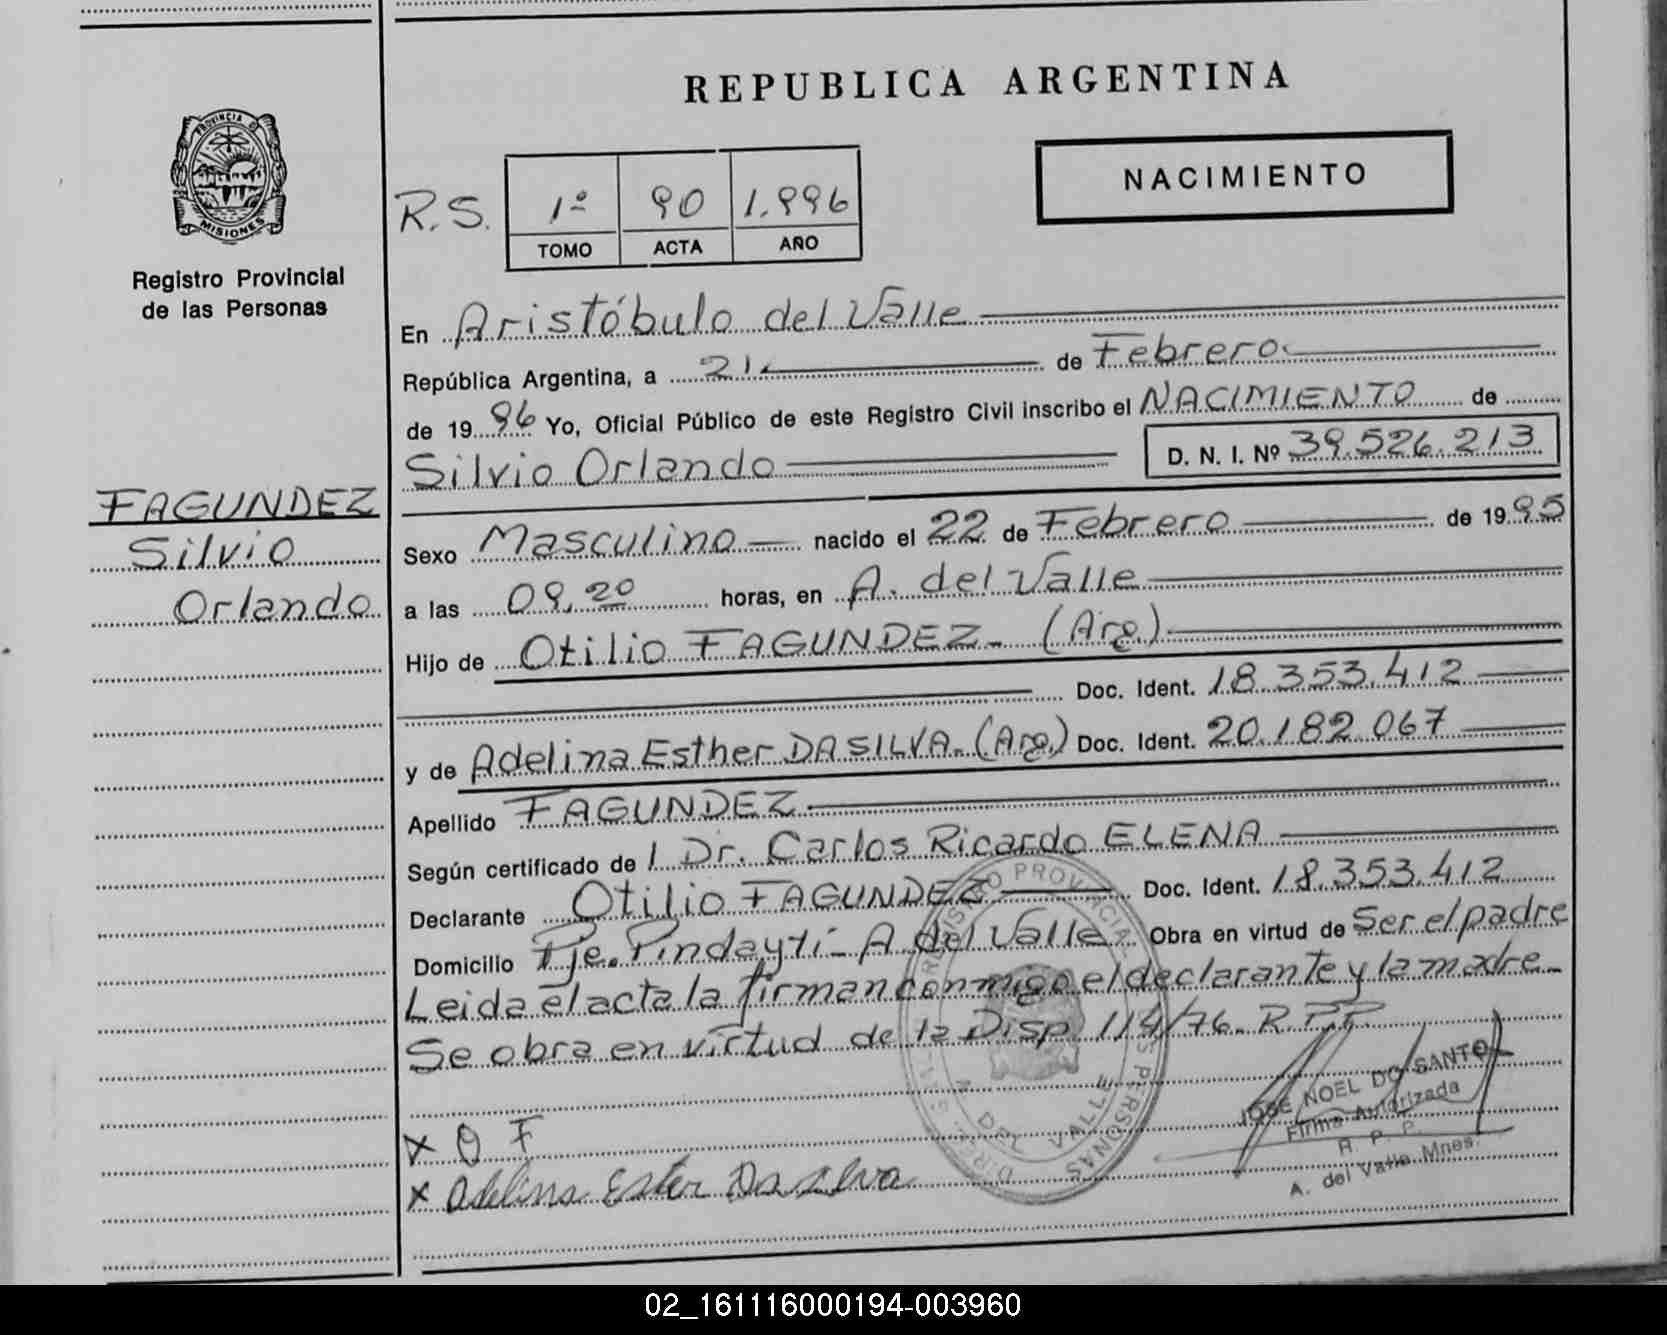 REPUBLICA ARGENTINA
PROVINCIA D
MISIONES
Registro Provincial
de las Personas
NACIMIENTO
R.S. 1º 90 1.996
TOMO ACTA AÑO
En Aristóbulo del Valle
República Argentina, a 21 de Febrero
de 19 96 Yo, Oficial Público de este Registro Civil inscribo el NACIMIENTO de
Silvio Orlando D. N. I. Nº 39.526.213
FAGUNDEZ
Silvio
Orlando
Sexo Masculino nacido el 22 de Febrero de 19 95
a las 09,20 horas, en A. del Valle
Hijo de Otilio FAGUNDEZ (Arg.)
Doc. Ident. 18.353.412
y de Adelina Esther DA SILVA. (Arg.) Doc. Ident. 20.182.067
Apellido FAGUNDEZ
Según certificado de 1 Dr. Carlos Ricardo ELENA
Declarante Otilio FAGUNDEZ Doc. Ident. 18.353.412
Domicilio Pje. Pindaytí - A del Valle Obra en virtud de Ser el padre
Leida el acta la firman conmigo el declarante y la madre
Se obra en virtud de la Disp 114/76. R.P.P.
JOSE NOEL DO SANTO
Firma Autorizada
R. P. P.
A. del Valle Mnes.
X O F
X Adelina Ester Da silva
A. DEL VALLE
02_161116000194-003960